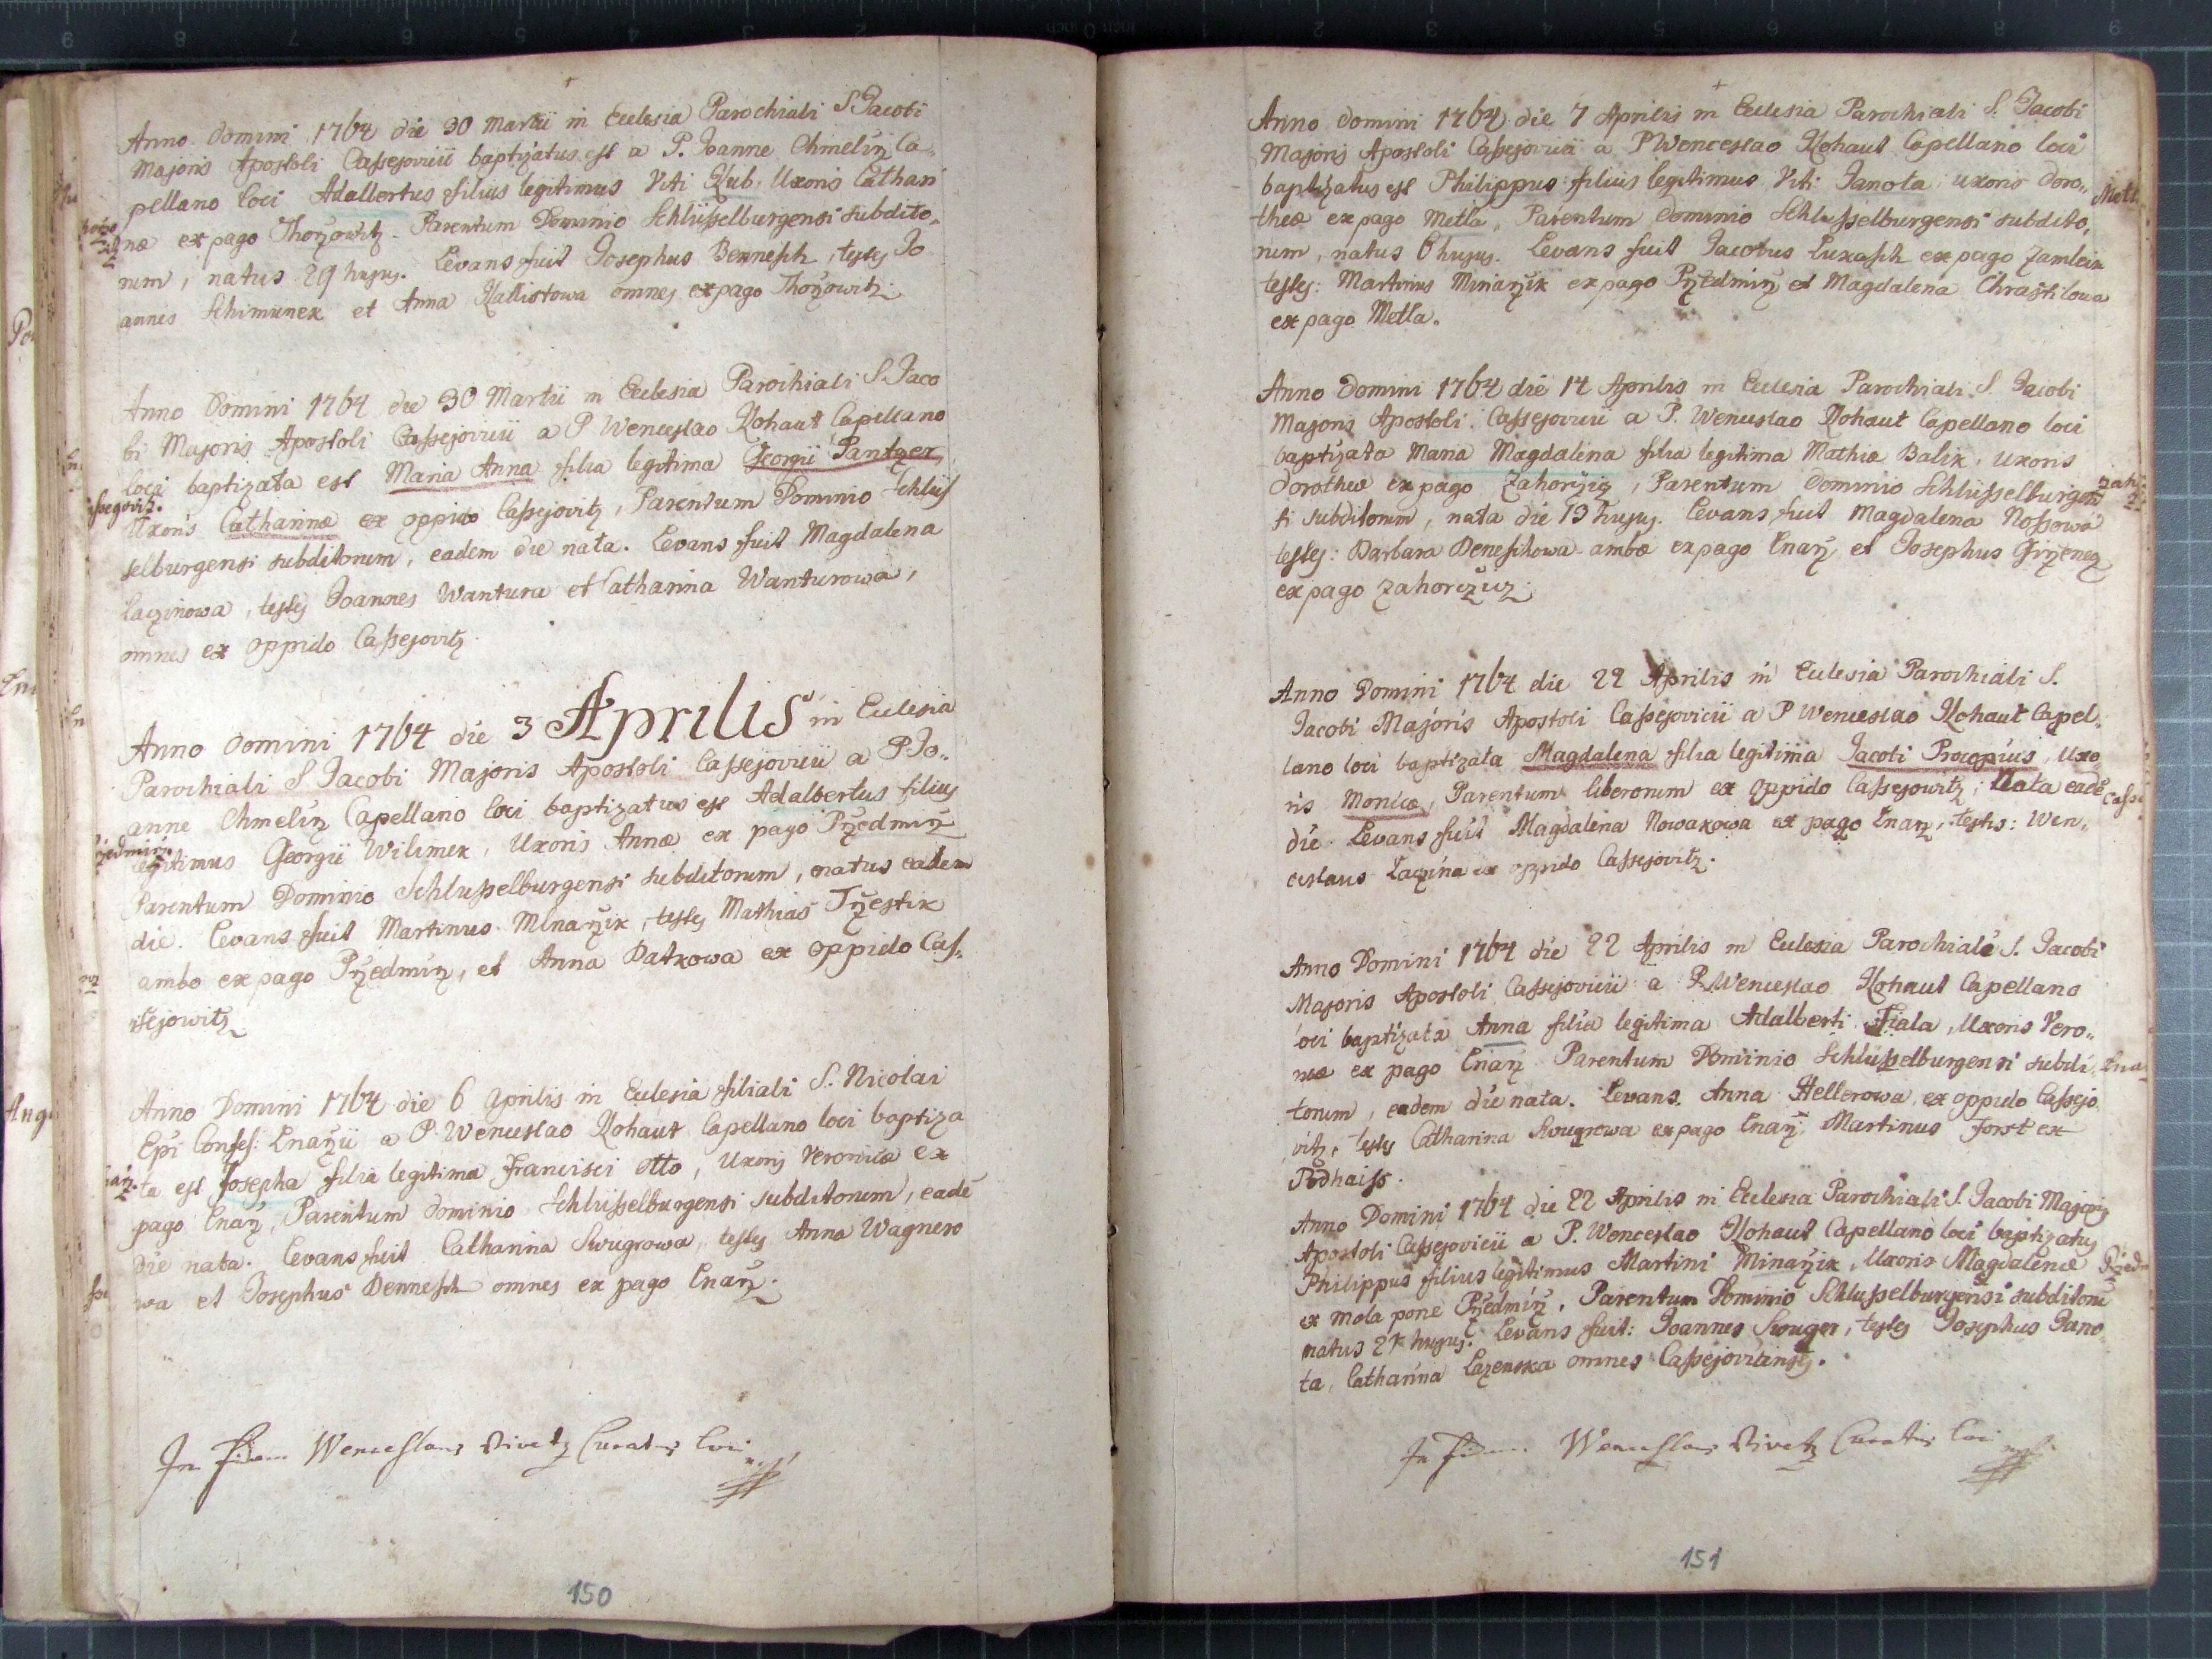 Anno Domini 1764 die 30 Martii in Ecclesia Parochiali S. Jacobi
Majoris Apostoli Cassejovicii baptizatus est a P. Joanne Chmelinz Ca„
pellano loci Adalbertus filius legitimus Viti Kub, Uxoris Cathari
næ ex pago Thorzowitz. Parentum Dominio Schlüsselburgensi subdito„
rum, natus 29 hujus. Levans fuit Josephus Bennesch, testes Jo
annes Schimunek et Anna Kallistowa omnes ex pago Thorzowitz.
Anno Domini 1764 die 30 Martii in Ecclesia Parochiali S. Jaco
bi Majoris Apostoli Cassejovicii a P Wenceslao Kohaut Capellano
loci baptizata est Maria Anna filia legitima Georgii Pantzer,
Uxoris Catharinæ ex oppido Cassejovitz, Parentum Dominio Schlüs
selburgensi subditorum, eadem die nata. Levans fuit Magdalena
Laczinowa, testes Joannes Wantura et Catharina Wanturowa,
omnes ex oppido Cassejovitz.
Anno Domini 1764 die 3 Aprilis in Ecclesia
Parochiali S Jacobi Majoris Apostoli Cassejovicii a P. Jo„
anne Chmelinz Capellano loci baptizatus est Adalbertus filius
legitimus Georgii Wilimek, Uxoris Annæ ex pago Przedmirz
Parentum Dominio Schlusselburgensi subditorum, natus eadem
die. Levans fuit Martinus Mlnarzik, testes Mathias Trzestik
ambo ex pago Przedmirz, et Anna Patkowa ex oppido Cas„
sejowitz
Anno Domini 1764 die 6 Aprilis in Ecclesia filiali S. Nicolai
Epi Confes: Lnarzii a P. Wenceslao Kohaut Capellano loci baptiza
ta est Josepha filia legitima Francisci Otto, Uxoris Veronicæ ex
pago Lnarz, Parentum Dominio Schlüsselburgensi subditorum, eadē
die nata. Levans fuit Catharina Swugrowa, testes Anna Wagnero
wa et Josephus Dennesch omnes ex pago Lnarz.
In Fidem Wenceslaus Divetz Curatus loci mpp
150
Anno Domini 1764 die 7 Aprilis in Ecclesia Parochiali S. Jacobi
Majoris Apostoli Cassejovicii a P Wenceslao Kohaut Capellano loci
baptizatus est Philippus filius legitimus Viti Janota, uxoris Doro„
theæ ex pago Metla, Parentum Dominio Schlusselburgensi subdito„
rum, natus 6 hujus. Levans fuit Jacobus Luxasch ex pago Zamlein
testes: Martinus Minarzik ex pago Przedmirz et Magdalena Chrastilowa
ex pago Metla.
Anno Domini 1764 die 14 Aprilis in Ecclesia Parochiali S. Jacobi
Majoris Apostoli Cassejovicii a P. Wenceslao Kohaut Capellano loci
baptizata Maria Magdalena filia legitima Mathiæ Balik, uxoris
Dorotheæ ex pago Zahorziz, Parentum Dominio Schlüsselburgen
si subditorum, nata die 13 hujus. Levans fuit Magdalena Nossowa
testes: Barbara Deneschowa ambæ ex pago Lnarz et Josephus
ex pago Zahorcziz.
Anno Domini 1764 die 22 Aprilis in Ecclesia Parochiali S.
Jacobi Majoris Apostoli Cassejovicii a P Wenceslao Kohaut Capel„
lano loci baptizata Magdalena filia legitima Jacobi Procopius, Uxo
ris Monicæ, Parentum liberorum ex oppido Cassejowitz, Nata eadē
die. Levans fuit Magdalena Nowakowa ex pago Lnarz, testis: Wen„
ceslaus Laczina ex oppido Cassejovitz.
Anno Domini 1764 die 22 Aprilis in Ecclesia Parochiali S. Jacobi
Majoris Apostoli Cassejovicii a P. Wenceslao Kohaut Capellano
loci baptizata Anna filia legitima Adalberti Fiala, Uxoris Vero„
nicæ ex pago Lnarz Parentum Dominio Schlusselburgensi subdi
torum, eadem die nata. Levans Anna Hellerowa ex oppido Cassejo
vitz, testes Catharina Swugrowa ex pago Lnarz, Martinus Forst ex
Podhaiss.
Anno Domini 1764 die 22 Aprilis in Ecclesia Parochiali S. Jacobi Majoris
Apostoli Cassejovicii a P. Wenceslao Kohaut Capellano loci baptizatus
Philippus filius legitimus Martini Minarzik, Uxoris Magdalenæ
ex mola pone Przedmirz, Parentum Dominio Schlusselburgensi subditorū
natus 21 hujus. Levans fuit: Joannes Swuger, testes Josephus Jano
ta, Catharina Lazenska omnes Cassejovitenses.
In Fidem Wenceslaus Divetz Curatus loci mpp
151